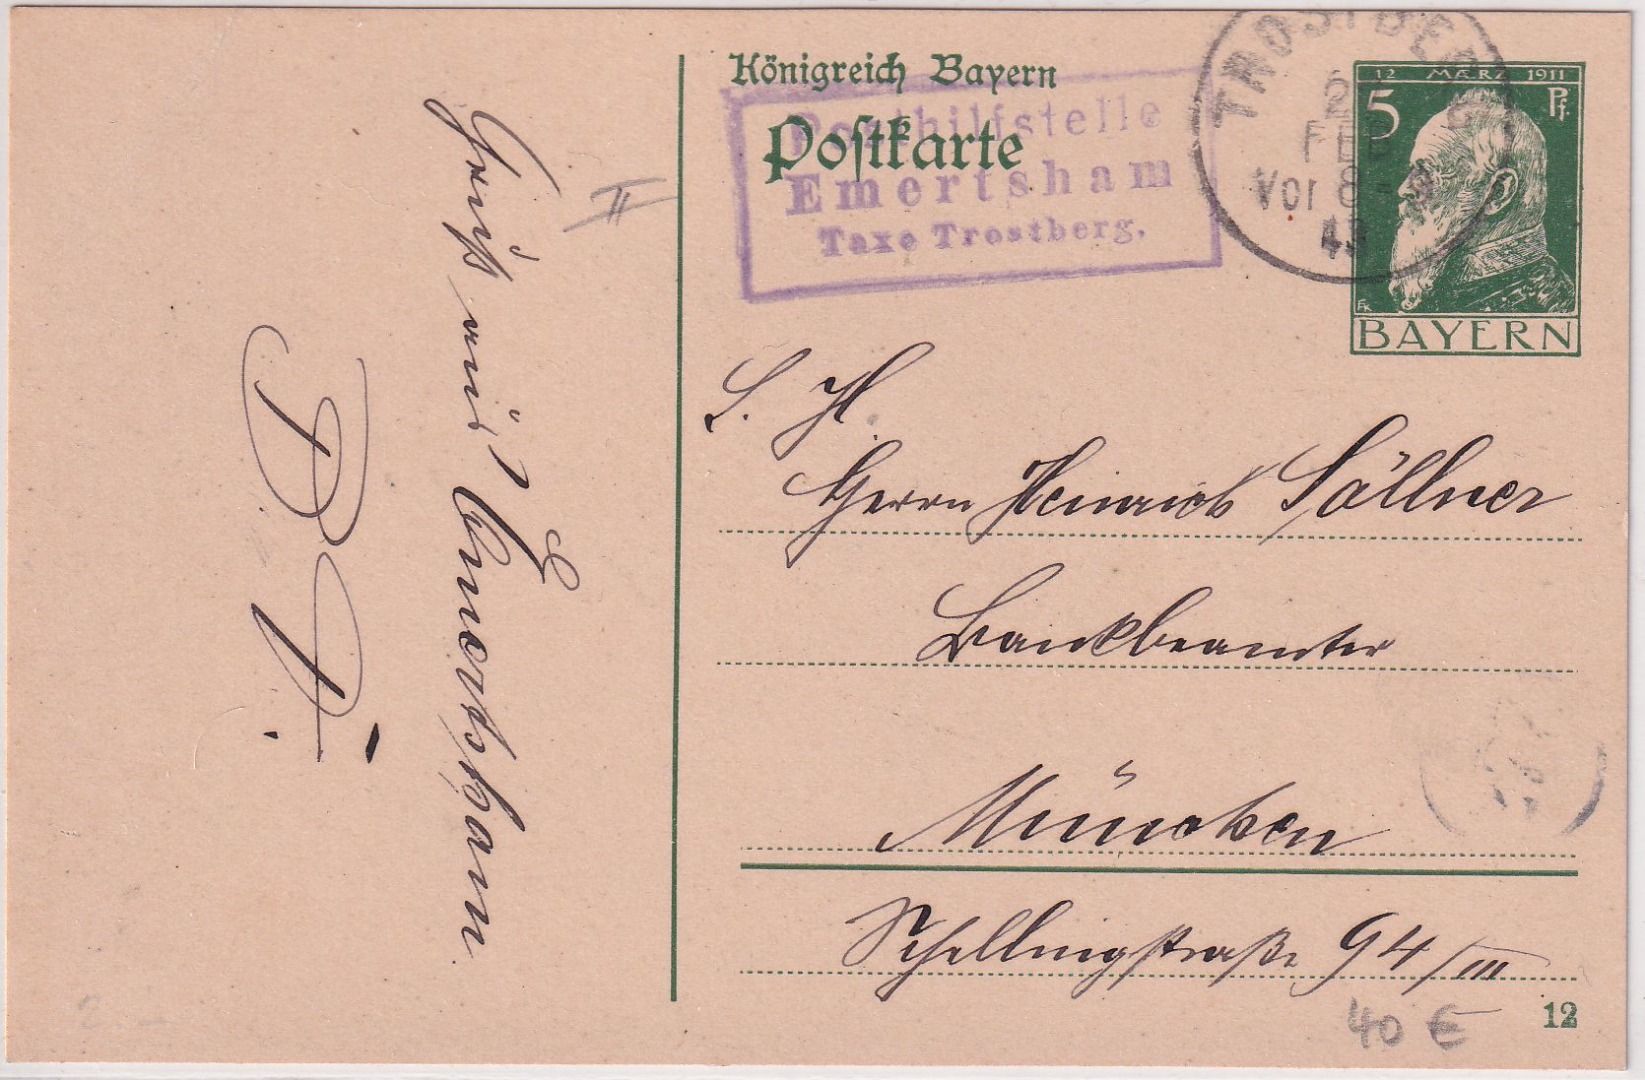 Königreich Bayern
Postkarte
Posthilfstelle
Emertsham
Taxe Trostberg.
TROSTBERG
FEB
Vor 8-9
12 MÆRZ 1911
5 Pf.
BAYERN
S. H.
Herrn Heinrich Söllner
Bankbeamter
München
Schellingstraße 94/III
12
40 €
II
Gruß aus Emertsham